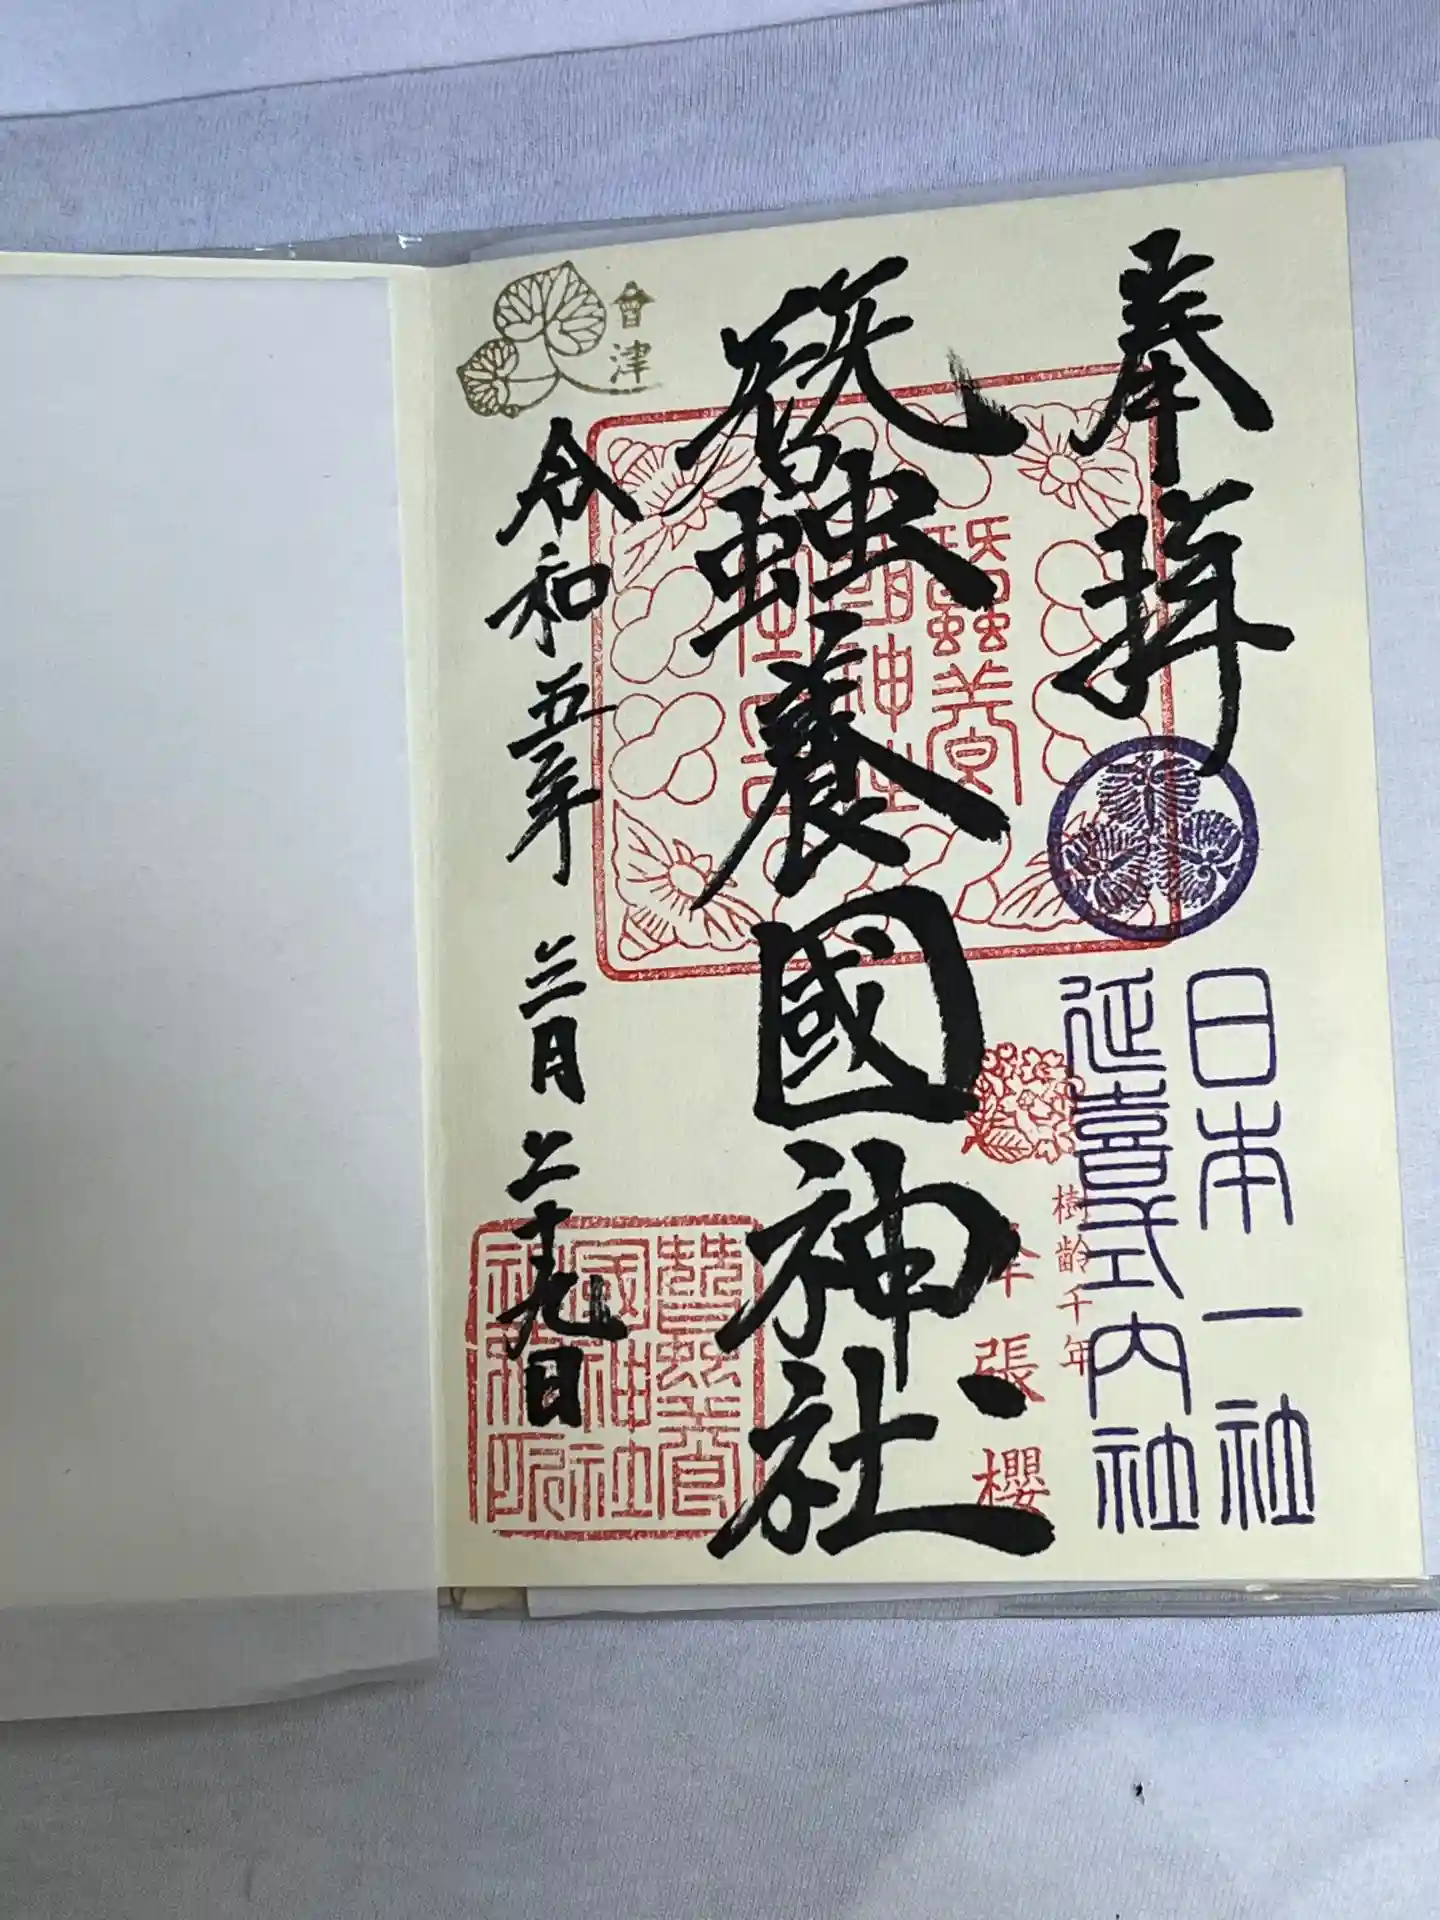 奉拝
日本一社
延喜式内社
樹齢千年
峰張櫻
蠶養國神社
蠶養
國神社
會津
令和五年三月二十九日
蠶養
國神社